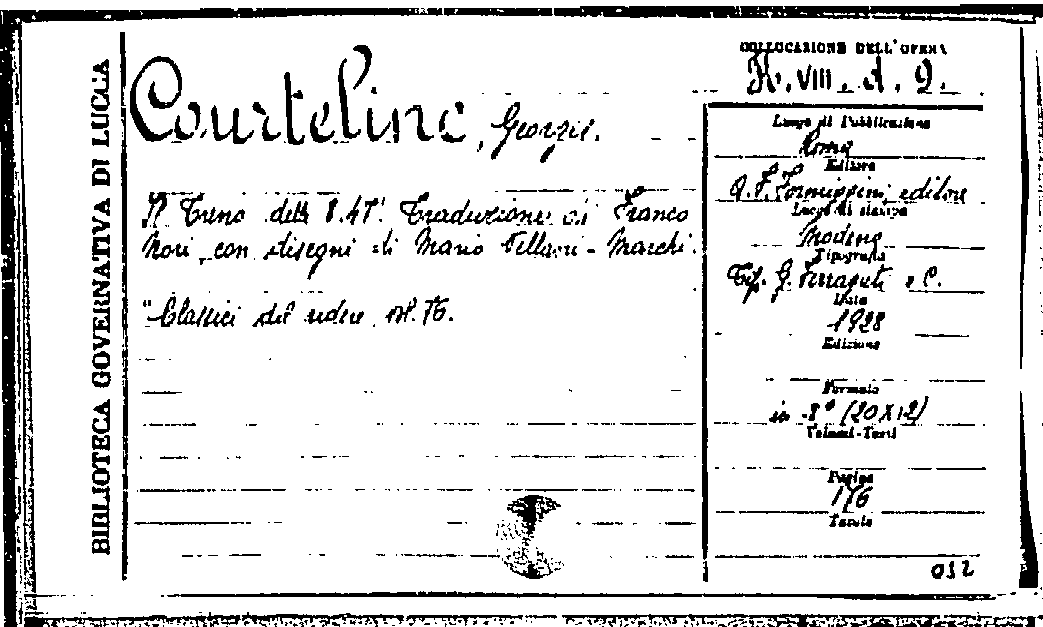 BIBLIOTECA GOVERNATIVA DI LUCCA
Courteline, Georges.
Il Treno delle 8.47. Traduzione di Franco
Nori, con disegni di Mario Vellani-Marchi.
"Classici del ridere, n. 76.
COLLOCAZIONE DELL'OPERA
VIII. d. 9.
Luogo di Pubblicazione
Roma
Editore
A. F. Formiggini, editore
Luogo di stampa
Modena
Tipografia
Tip. G. Ferraguti e C.
Data
1928
Edizione
Formato
in-8° (20X12)
Volumi-Tomi
Pagine
176
Tavole
032